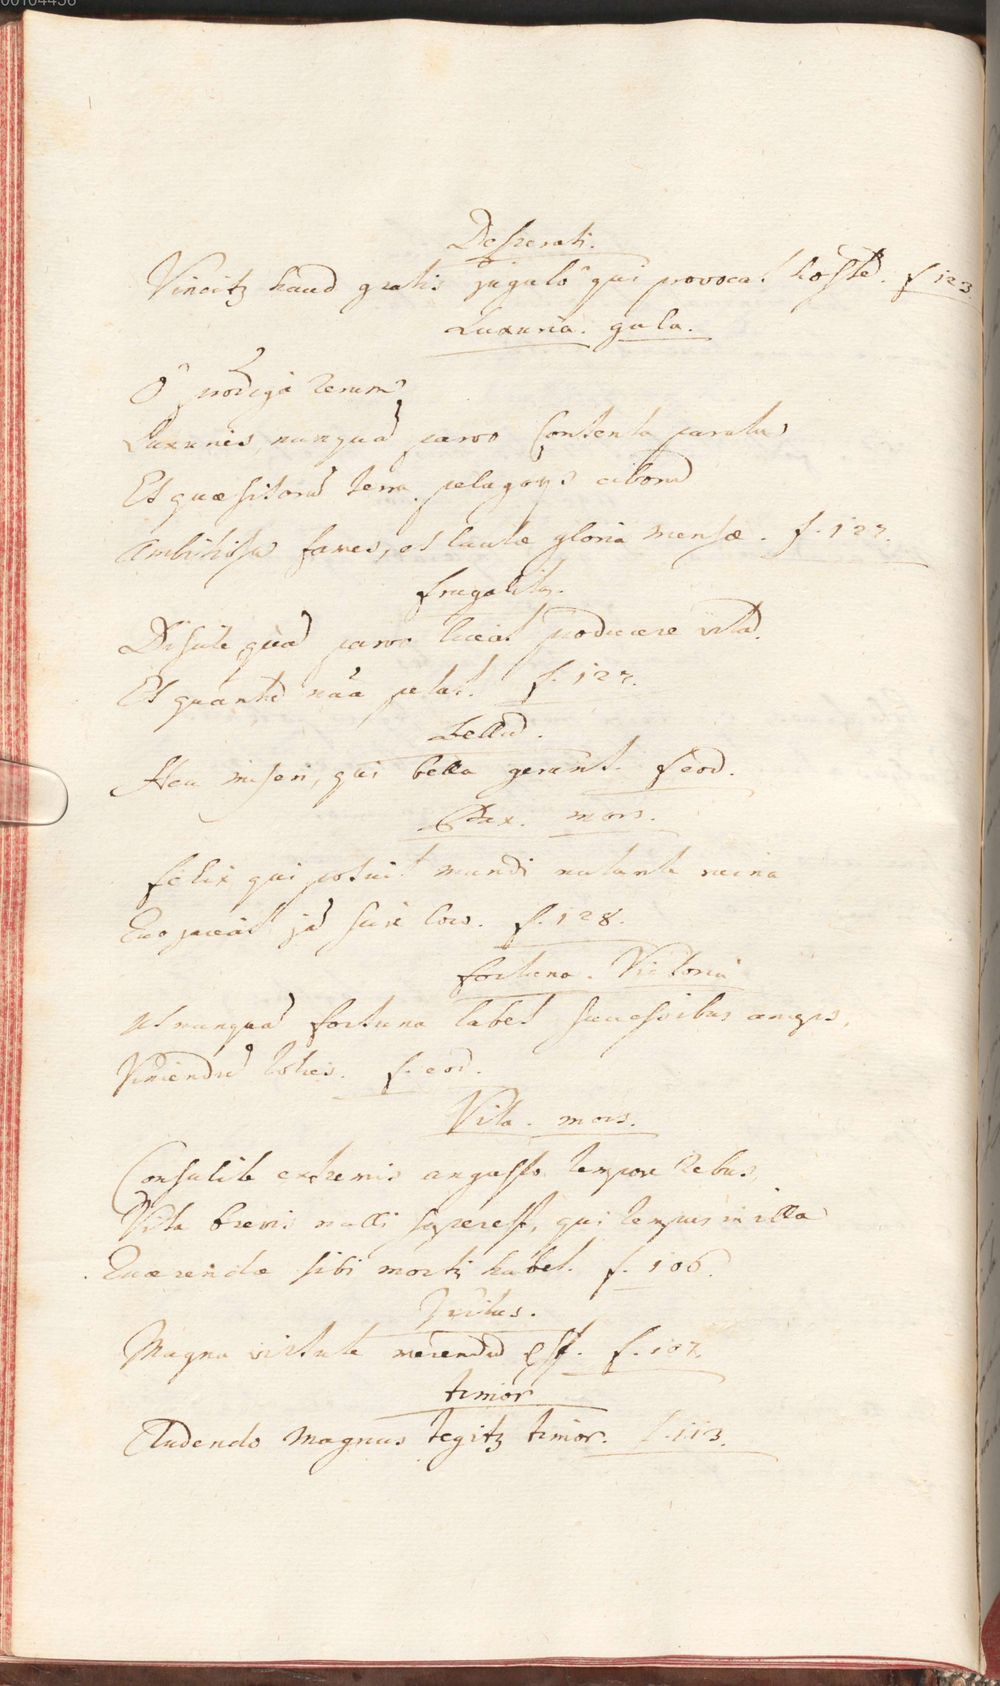 00104436
Desperati.
Vincitʒ haud gratis jugulo qui provocat hoste̅. f 123.
Luxuria. gula.
O prodiga rerum
Luxuries, nunqua̅ parvo Contenta paratus
Et quæsitoru̅ terra pelagoqȝ ciboru̅
Ambitiosa fames, et lautæ gloria mensæ. f. 127.
frugalitas.
Discite, qua̅ parvo liceat producere vita̅.
Et quantu̅ na̅a petat. f. 127.
Bellu̅.
Heu miseri, qui bella gerunt. f eod.
Pax. mors.
felix qui potuit mundi nutante ruina
Quo jaceat ja̅ scire loco. f. 128.
fortuna. Victoria
Ut nunqua̅ fortuna labet successibus anceps,
Vincendu̅ toties. f. eod.
Vita. mors.
Consulite extremis angusto tempore rebus,
Vita brevis nulli superest, qui tempus in illa
Quærendæ sibi mortis habet. f. 106.
Virtus.
Magna virtute merendu̅ est. f. 107.
timor
Audendo magnus tegitʒ timor. f. 113.